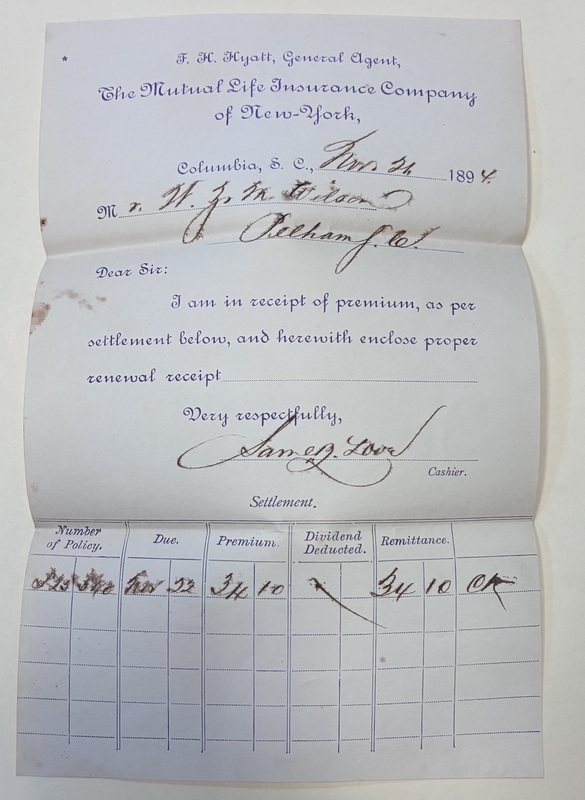 F. H. Hyatt, General Agent,
The Mutual Life Insurance Company
of New-York,
Columbia, S. C., Nov. 26 1894.
Mr. W. Wilson
Pelham S. C.
Dear Sir:
I am in receipt of premium, as per
settlement below, and herewith enclose proper
renewal receipt
Very respectfully,
Cashier.
Settlement.
Number of Policy. Due. Premium. Dividend Deducted. Remittance.
Nov 22 34 10 34 10 OK